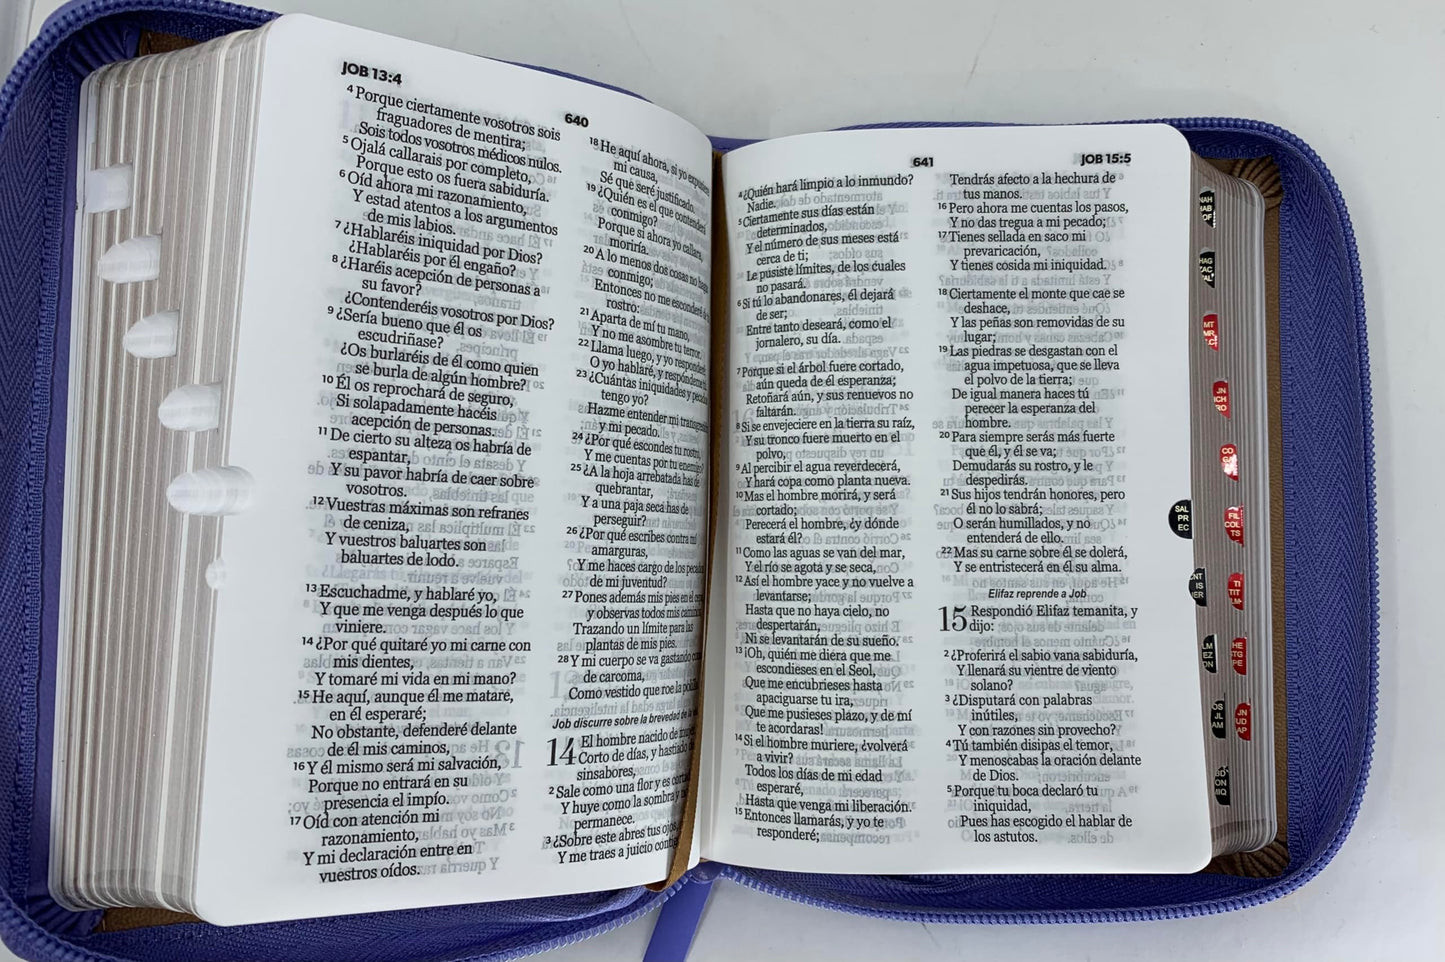 JOB 13:4
640
4 Porque ciertamente vosotros sois
fraguadores de mentira;
Sois todos vosotros médicos nulos.
5 Ojalá callarais por completo,
Porque esto os fuera sabiduría.
6 Oíd ahora mi razonamiento,
Y estad atentos a los argumentos
de mis labios.
7 ¿Hablaréis iniquidad por Dios?
¿Hablaréis por él engaño?
8 ¿Haréis acepción de personas a
su favor?
¿Contenderéis vosotros por Dios?
9 ¿Sería bueno que él os
escudriñase?
¿Os burlaréis de él como quien
se burla de algún hombre?
10 Él os reprochará de seguro,
Si solapadamente hacéis
acepción de personas.
11 De cierto su alteza os habría de
espantar,
Y su pavor habría de caer sobre
vosotros.
12 Vuestras máximas son refranes
de ceniza,
Y vuestros baluartes son
baluartes de lodo.
13 Escuchadme, y hablaré yo,
Y que me venga después lo que
viniere.
14 ¿Por qué quitaré yo mi carne con
mis dientes,
Y tomaré mi vida en mi mano?
15 He aquí, aunque él me matare,
en él esperaré;
No obstante, defenderé delante
de él mis caminos,
16 Y él mismo será mi salvación,
Porque no entrará en su
presencia el impío.
17 Oíd con atención mi
razonamiento,
Y mi declaración entre en
vuestros oídos.
18 He aquí ahora, si yo
mi causa,
Sé que seré justificado.
19 ¿Quién es el que contenderá
conmigo?
Porque si ahora yo callara,
moriría.
20 A lo menos dos cosas no
conmigo;
Entonces no me esconderé de
rostro:
21 Aparta de mí tu mano,
Y no me asombre tu terror.
22 Llama luego, y yo responderé;
O yo hablaré, y respóndeme
23 ¿Cuántas iniquidades y
tengo yo?
Hazme entender mi
y mi pecado.
24 ¿Por qué escondes tu rostro,
Y me cuentas por tu enemigo?
25 ¿A la hoja arrebatada has de
quebrantar,
Y a una paja seca has de
perseguir?
26 ¿Por qué escribes contra mí
amarguras,
Y me haces cargo de los
de mi juventud?
27 Pones además mis pies en el
y observas todos mis
Trazando un límite para las
plantas de mis pies.
28 Y mi cuerpo se va gastando
de carcoma,
Como vestido que roe la polilla.
Job discurre sobre la brevedad de la
14 El hombre nacido de
Corto de días, y hastiado de
sinsabores,
2 Sale como una flor y es
Y huye como la sombra y
permanece.
3 ¿Sobre este abres tus ojos,
Y me traes a juicio
641
JOB 15:5
4 ¿Quién hará limpio a lo inmundo?
Nadie.
5 Ciertamente sus días están
determinados,
Y el número de sus meses está
cerca de ti;
Le pusiste límites, de los cuales
no pasará.
6 Si tú lo abandonares, él dejará
de ser;
Entre tanto deseará, como el
jornalero, su día.
7 Porque si el árbol fuere cortado,
aún queda de él esperanza;
Retoñará aún, y sus renuevos no
faltarán.
8 Si se envejeciere en la tierra su raíz,
Y su tronco fuere muerto en el
polvo,
9 Al percibir el agua reverdecerá,
Y hará copa como planta nueva.
10 Mas el hombre morirá, y será
cortado;
Perecerá el hombre, ¿y dónde
estará él?
11 Como las aguas se van del mar,
Y el río se agota y se seca,
12 Así el hombre yace y no vuelve a
levantarse;
Hasta que no haya cielo, no
despertarán,
Ni se levantarán de su sueño.
13 ¡Oh, quién me diera que me
escondieses en el Seol,
Que me encubrieses hasta
apaciguarse tu ira,
Que me pusieses plazo, y de mí
te acordaras!
14 Si el hombre muriere, ¿volverá
a vivir?
Todos los días de mi edad
esperaré,
Hasta que venga mi liberación.
15 Entonces llamarás, y yo te
responderé;
Tendrás afecto a la hechura de
tus manos.
16 Pero ahora me cuentas los pasos,
Y no das tregua a mi pecado;
17 Tienes sellada en saco mi
prevaricación,
Y tienes cosida mi iniquidad.
18 Ciertamente el monte que cae se
deshace,
Y las peñas son removidas de su
lugar;
19 Las piedras se desgastan con el
agua impetuosa, que se lleva
el polvo de la tierra;
De igual manera haces tú
perecer la esperanza del
hombre.
20 Para siempre serás más fuerte
que él, y él se va;
Demudarás su rostro, y le
despedirás.
21 Sus hijos tendrán honores, pero
él no lo sabrá;
O serán humillados, y no
entenderá de ello.
22 Mas su carne sobre él se dolerá,
Y se entristecerá en él su alma.
Elifaz reprende a Job
15 Respondió Elifaz temanita, y
dijo:
2 ¿Proferirá el sabio vana sabiduría,
Y llenará su vientre de viento
solano?
3 ¿Disputará con palabras
inútiles,
Y con razones sin provecho?
4 Tú también disipas el temor,
Y menoscabas la oración delante
de Dios.
5 Porque tu boca declaró tu
iniquidad,
Pues has escogido el hablar de
los astutos.
SAL
PR
EC